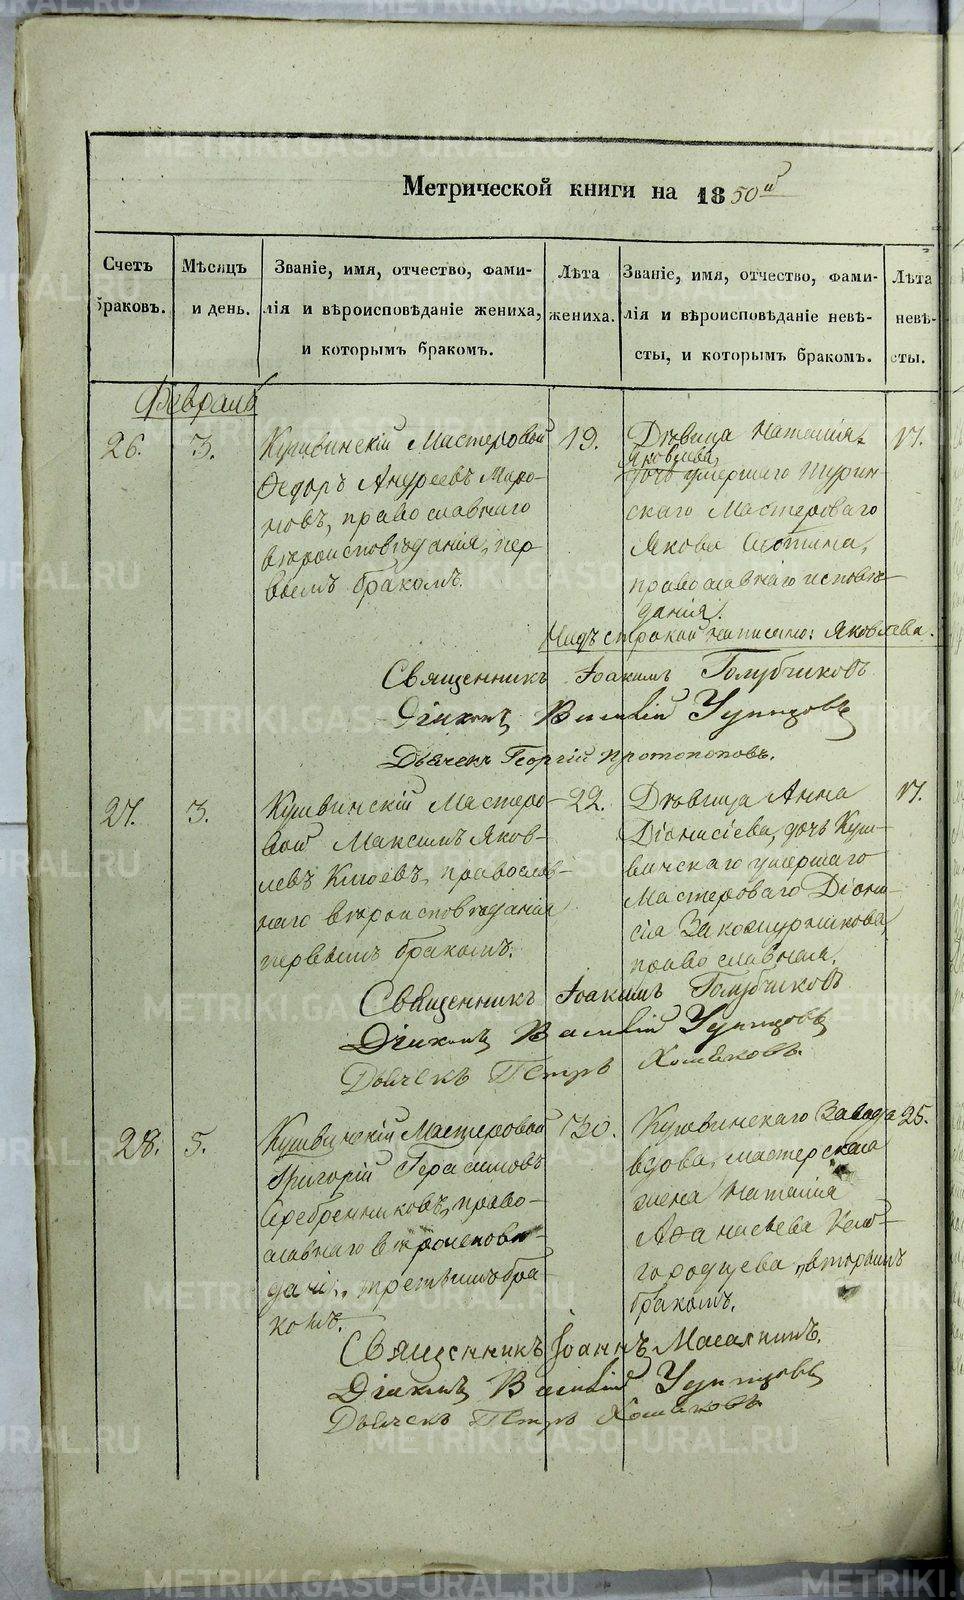 Метрической книги на 1850й
Счетъ браковъ.
Мѣсяцъ и день.
Званіе, имя, отчество, фами-
лія и вѣроисповѣданіе жениха,
и которымъ бракомъ.
Лѣта жениха.
Званіе, имя, отчество, фами-
лія и вѣроисповѣданіе невѣ-
сты, и которымъ бракомъ.
Лѣта невѣ-
сты.
Февраль
26.
3.
Кушвинскій Мастеровой
Ѳедоръ Андреевъ Миро-
новъ, православнаго
вѣроисповѣданія, пер
вымъ бракомъ.
19.
Дѣвица Наталія
Яковлева,
дочь умершаго Турин
скаго Мастероваго
Якова
православнаго исповѣ-
данія.
17.
Надъ строкой написано: Яковлева.
Священникъ Іоакимъ Голубчиковъ
Діаконъ Василій
Дьячекъ Георгій Протопоповъ.
27.
3.
Кушвинскій Мастеро-
вой Максимъ Яков-
левъ православ-
наго вѣроисповѣданія
первымъ бракомъ.
22.
Дѣвица Анна
Діонисіева, дочь Куш-
винскаго умершаго
Мастероваго Діони-
сія Закожурникова,
православная.
17.
Священникъ Іоакимъ Голубчиковъ
Діаконъ Василій
Дьячекъ Петръ Хомяковъ.
28.
5.
Кушвинскій Мастеровой
Григорій Герасимовъ
Серебренниковъ, право-
славнаго вѣроисповѣ-
данія, третьимъ бра
комъ.
30.
Кушвинскаго Завода
вдова, мастерская
жена Наталія
Аѳанасьева
вторымъ
бракомъ.
25.
Священникъ Іоаннъ
Діаконъ Василій
Дьячекъ Петръ Хомяковъ.
METRIKI.GASO-URAL.RU